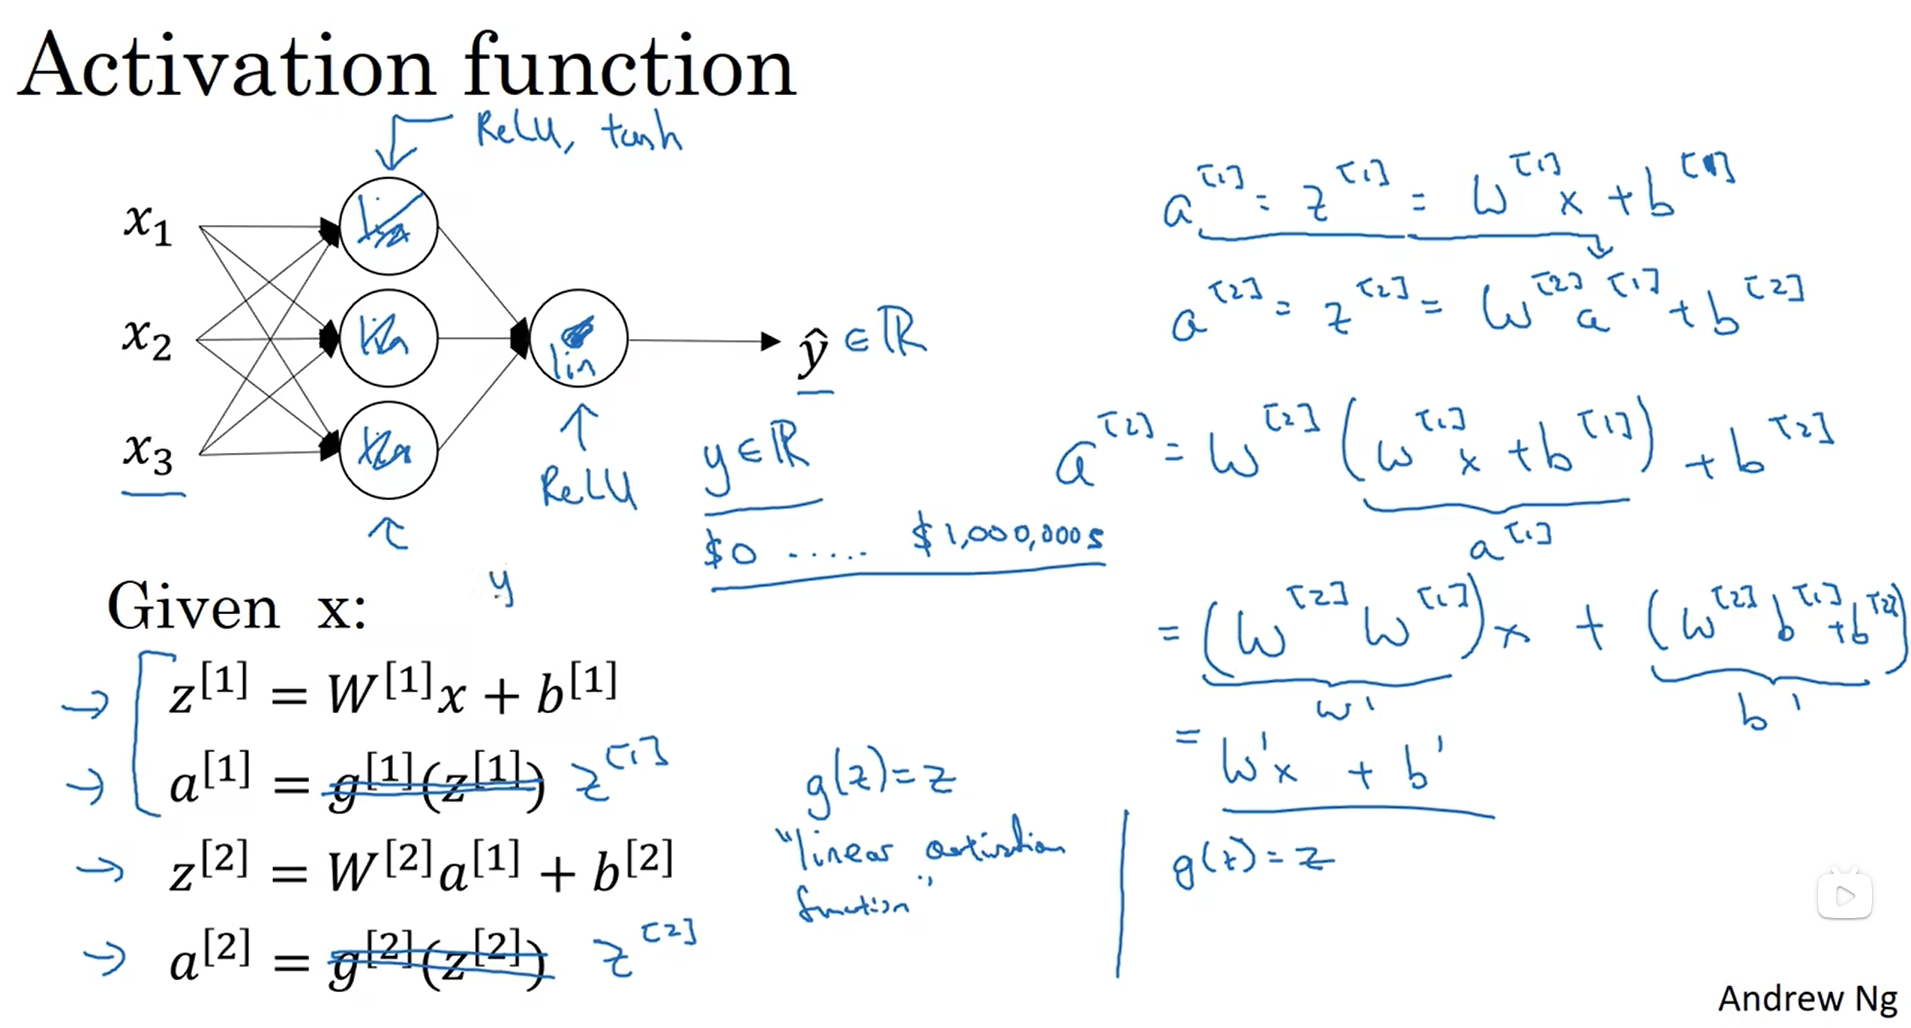 Activation function
ReLU, tanh
x₁
x₂
x₃
lin
ŷ ∈ ℝ
ReLU
y ∈ ℝ
$0 ..... $1,000,000s
Given x:
y
z^[1] = W^[1]x + b^[1]
a^[1] = g^[1](z^[1]) z^[1]
z^[2] = W^[2]a^[1] + b^[2]
a^[2] = g^[2](z^[2]) z^[2]
g(z) = z
"linear activation
function"
a^[1] = z^[1] = W^[1]x + b^[1]
a^[2] = z^[2] = W^[2]a^[1] + b^[2]
a^[2] = W^[2](W^[1]x + b^[1]) + b^[2]
a^[1]
= (W^[2]W^[1])x + (W^[2]b^[1] + b^[2])
W' b'
= W'x + b'
g(z) = z
Andrew Ng